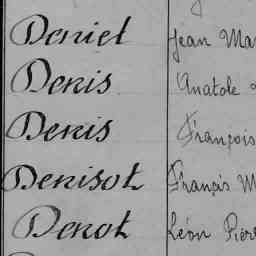 Deniel Jean Ma
Denis Anatole
Denis François
Denisot François M
Denot Léon Pierr